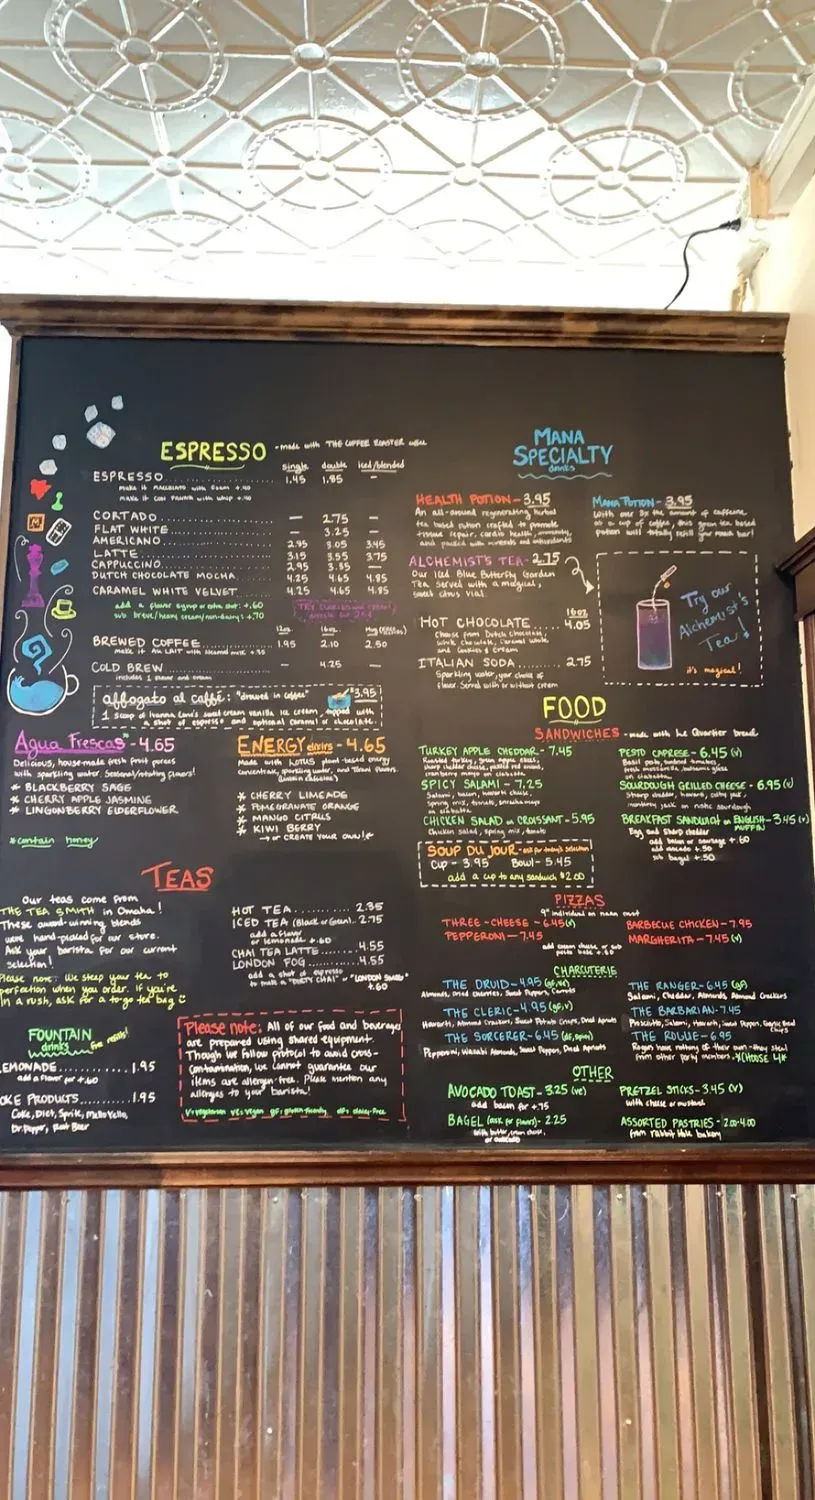 ESPRESSO - made with THE COFFEE ROASTER coffee
single double iced/blended
ESPRESSO 1.45 1.85 —
make it MACCHIATO with foam +.40
make it CON PANNA with whip +.40
CORTADO — 2.75 —
FLAT WHITE — 3.25 —
AMERICANO 2.95 3.05 3.45
LATTE 3.15 3.55 3.75
CAPPUCCINO 2.95 3.35 —
DUTCH CHOCOLATE MOCHA 4.25 4.65 4.85
CARAMEL WHITE VELVET 4.25 4.65 4.85
add a flavor syrup or extra shot: +.60
sub breve/heavy cream/non-dairy: +.70
12oz. 16oz.
BREWED COFFEE 1.95 2.10 2.50
make it AU LAIT with steamed milk +.35
COLD BREW — 4.25 —
includes 1 flavor and cream
affogato al caffé: "drowned in coffee" $3.95
1 scoop of Ivanna Cone's sweet cream vanilla ice cream, topped with
a shot of espresso and optional caramel or chocolate.
Agua Frescas* - 4.65
Delicious, house-made fresh fruit purees
with sparkling water. Seasonal/rotating flavors!
* BLACKBERRY SAGE
* CHERRY APPLE JASMINE
* LINGONBERRY ELDERFLOWER
*contain honey
ENERGY elixirs - 4.65
Made with LOTUS plant-based energy
concentrate, sparkling water, and Torani flavors.
(contain caffeine)
* CHERRY LIMEADE
* POMEGRANATE ORANGE
* MANGO CITRUS
* KIWI BERRY
→ or CREATE YOUR OWN!
TEAS
Our teas come from
THE TEA SMITH in Omaha!
These award-winning blends
were hand-picked for our store.
Ask your barista for our current
selection!
Please note: We steep your tea to
perfection when you order. If you're
in a rush, ask for a to-go tea bag
HOT TEA 2.35
ICED TEA (Black or Green) 2.75
add a flavor
or lemonade +.60
CHAI TEA LATTE 4.55
LONDON FOG 4.55
add a shot of espresso
to make a "DIRTY CHAI" or "LONDON SMOG"
+.60
FOUNTAIN
drinks free refills!
LEMONADE 1.95
add a flavor for +.60
OKE PRODUCTS 1.95
Coke, Diet, Sprite, Mello Yello,
Dr. Pepper, Root Beer
Please note: All of our food and beverages
are prepared using shared equipment.
Though we follow protocol to avoid cross-
contamination, we cannot guarantee our
items are allergen-free. Please mention any
allergies to your barista!
V=vegetarian ve=vegan gf=gluten-friendly df=dairy-free
MANA
SPECIALTY
drinks
HEALTH POTION - 3.95
An all-around regenerating herbal
tea based potion crafted to promote
tissue repair, cardio health, immunity,
and packed with minerals and antioxidants
MANA POTION - 3.95
With over 3x the amount of caffeine
as a cup of coffee, this green tea based
potion will totally refill your mana bar!
ALCHEMIST'S TEA - 2.75
Our Iced Blue Butterfly Garden
Tea served with a magical,
sweet citrus vial.
Try our
Alchemist's
Tea!
it's magical!
16oz
HOT CHOCOLATE 4.05
Choose from Dutch chocolate,
White chocolate, Caramel White,
and Cookies & Cream
ITALIAN SODA 2.75
Sparkling water, your choice of
flavor. Served with or without cream
FOOD
SANDWICHES - made with Le Quartier bread
TURKEY APPLE CHEDDAR - 7.45
Roasted turkey, green apple slices,
sharp cheddar cheese, pickled red onion,
cranberry mayo on ciabatta
SPICY SALAMI - 7.25
Salami, bacon, havarti cheese,
spring mix, tomato, sriracha mayo
on ciabatta
CHICKEN SALAD on CROISSANT - 5.95
Chicken salad, spring mix, tomato
PESTO CAPRESE - 6.45 (v)
Basil pesto, sundried tomatoes,
fresh mozzarella, balsamic glaze
on ciabatta
SOURDOUGH GRILLED CHEESE - 6.95 (v)
Sharp cheddar, havarti, colby jack,
monterey jack on rustic sourdough
BREAKFAST SANDWICH on ENGLISH MUFFIN - 3.45 (v)
Egg and Sharp cheddar
add bacon or sausage +.60
add avocado +.50
sub bagel +.50
SOUP DU JOUR - ask for today's selection
Cup - 3.95 Bowl - 5.45
add a cup to any sandwich $2.00
PIZZAS
9" individual on naan crust
THREE-CHEESE - 6.45 (v)
PEPPERONI - 7.45
BARBECUE CHICKEN - 7.95
MARGHERITA - 7.45 (v)
add cream cheese or sub
pesto base +.60
CHARCUTERIE
THE DRUID - 4.95 (gf, ve)
Almonds, Dried Cherries, Sweet Peppers, Carrots
THE CLERIC - 4.95 (gf, v)
Havarti, Almond Crackers, Sweet Potato Crisps, Dried Apricots
THE SORCERER - 6.45 (df, spicy)
Pepperoni, Wasabi Almonds, Sweet Peppers, Dried Apricots
THE RANGER - 6.45 (gf)
Salami, Cheddar, Almonds, Almond Crackers
THE BARBARIAN - 7.45
Prosciutto, Salami, Havarti, Sweet Pepper, Garlic Bagel Chips
THE ROGUE - 6.95
Rogues have nothing of their own - they steal
from other party members - *CHOOSE 4!*
OTHER
AVOCADO TOAST - 3.25 (ve)
add bacon for +.75
BAGEL (ask for flavors) - 2.25
with butter, cream cheese,
or avocado
PRETZEL STICKS - 3.45 (v)
with cheese or mustard
ASSORTED PASTRIES - 2.00-4.00
from rabbit hole bakery